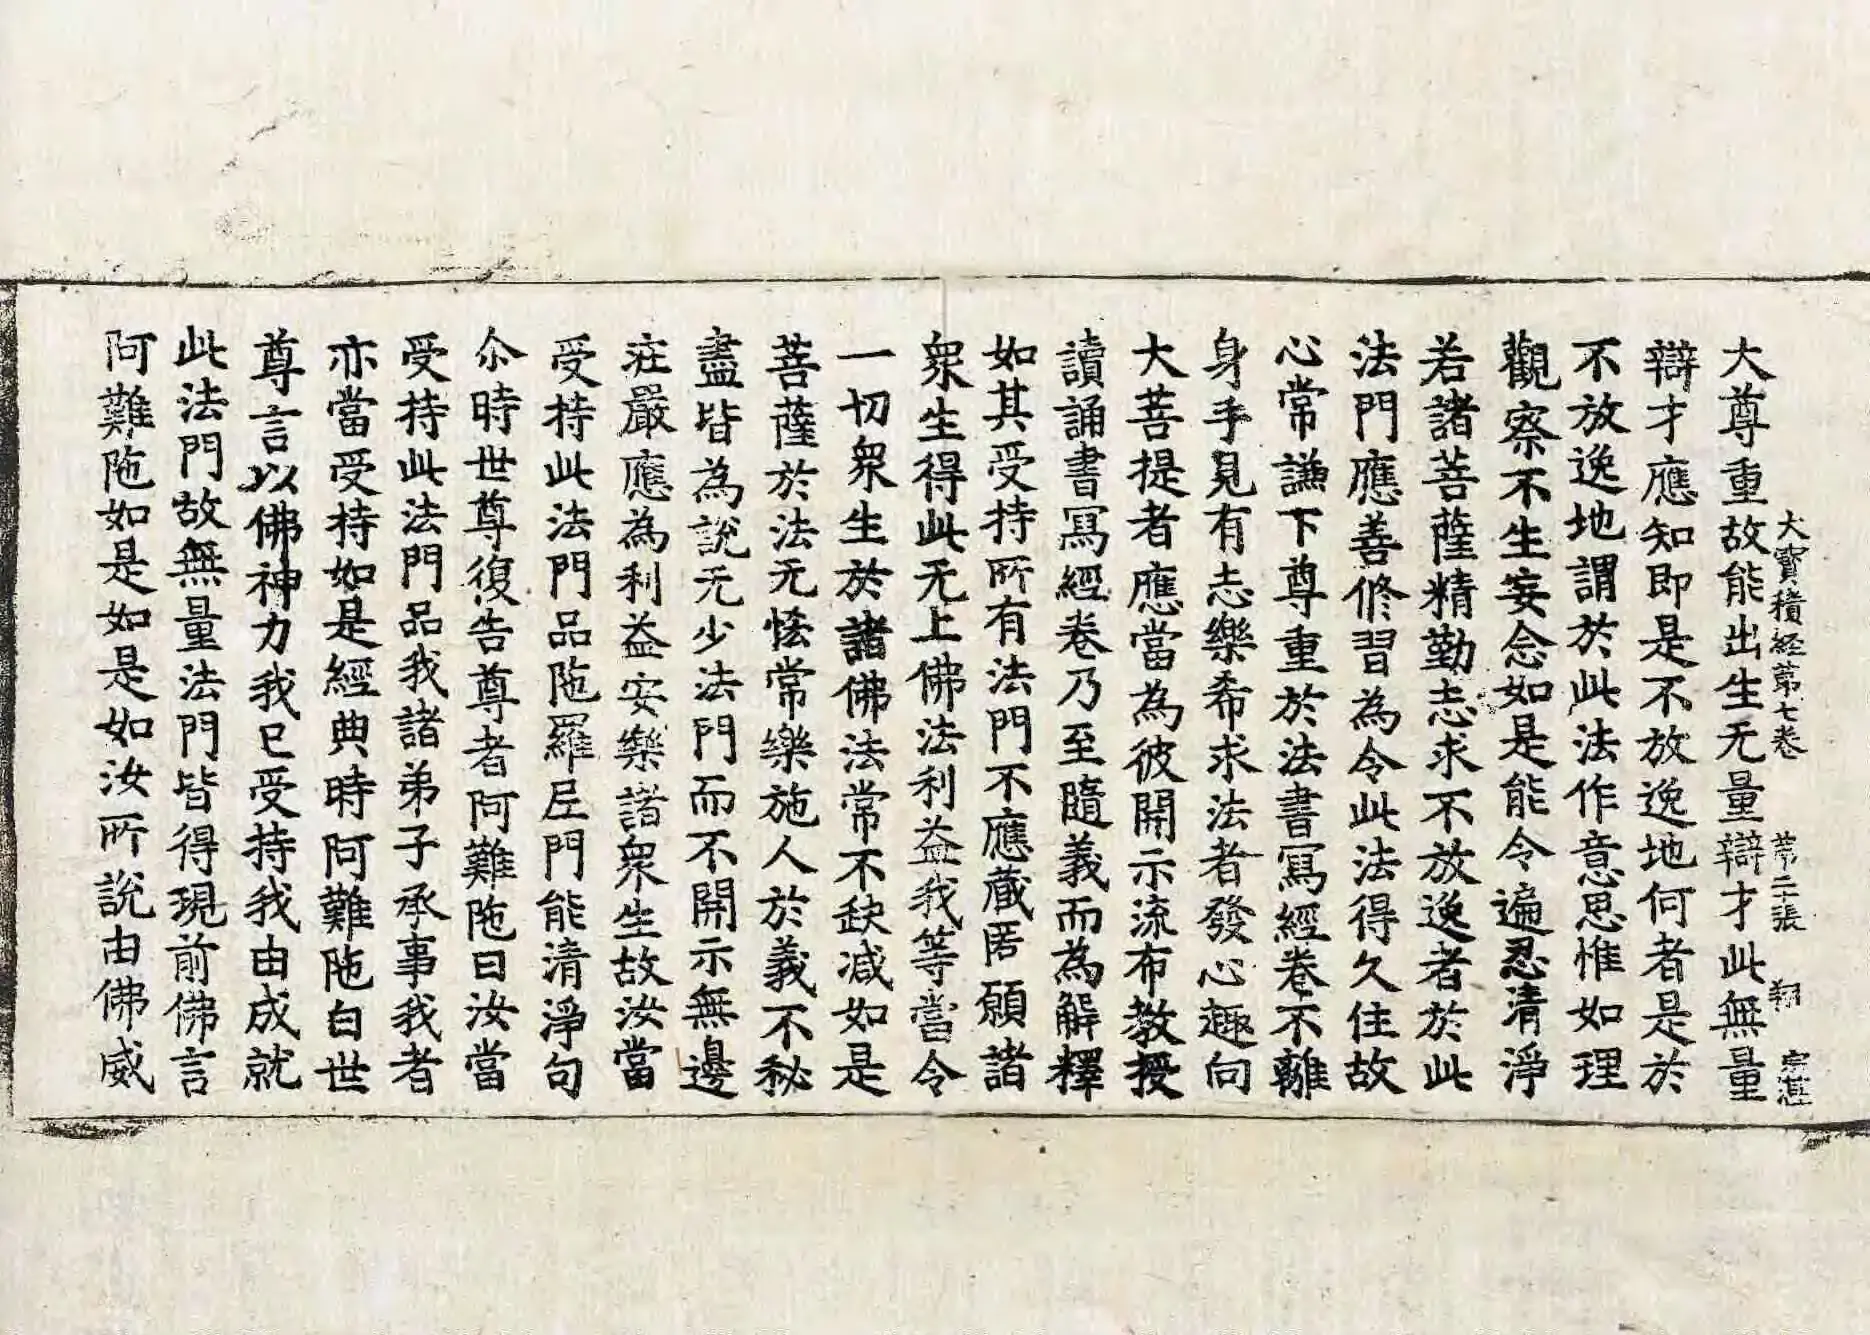 大寶積経苐七卷 苐二十張 翔 宗湛
大尊重故能出生无量辯才此無量
辯才應知即是不放逸地何者是於
不放逸地謂於此法作意思惟如理
觀察不生妄念如是能令遍忍清淨
若諸菩薩精勤志求不放逸者於此
法門應善修習為令此法得久住故
心常謙下尊重於法書寫經卷不離
身手見有志樂希求法者發心趣向
大菩提者應當為彼開示流布教授
讀誦書寫經卷乃至隨義而為解釋
如其受持所有法門不應蔵匿願諸
衆生得此无上佛法利益我等當令
一切衆生於諸佛法常不缺减如是
菩薩於法无恡常樂施人於義不秘
盡皆為說无少法門而不開示無邊
莊嚴應為利益安樂諸衆生故汝當
受持此法門品陁羅𡰱門能清淨句
尒時世尊復告尊者阿難陁曰汝當
受持此法門品我諸弟子承事我者
亦當受持如是經典時阿難陁白世
尊言以佛神力我已受持我由成就
此法門故無量法門皆得現前佛言
阿難陁如是如是如汝所說由佛威